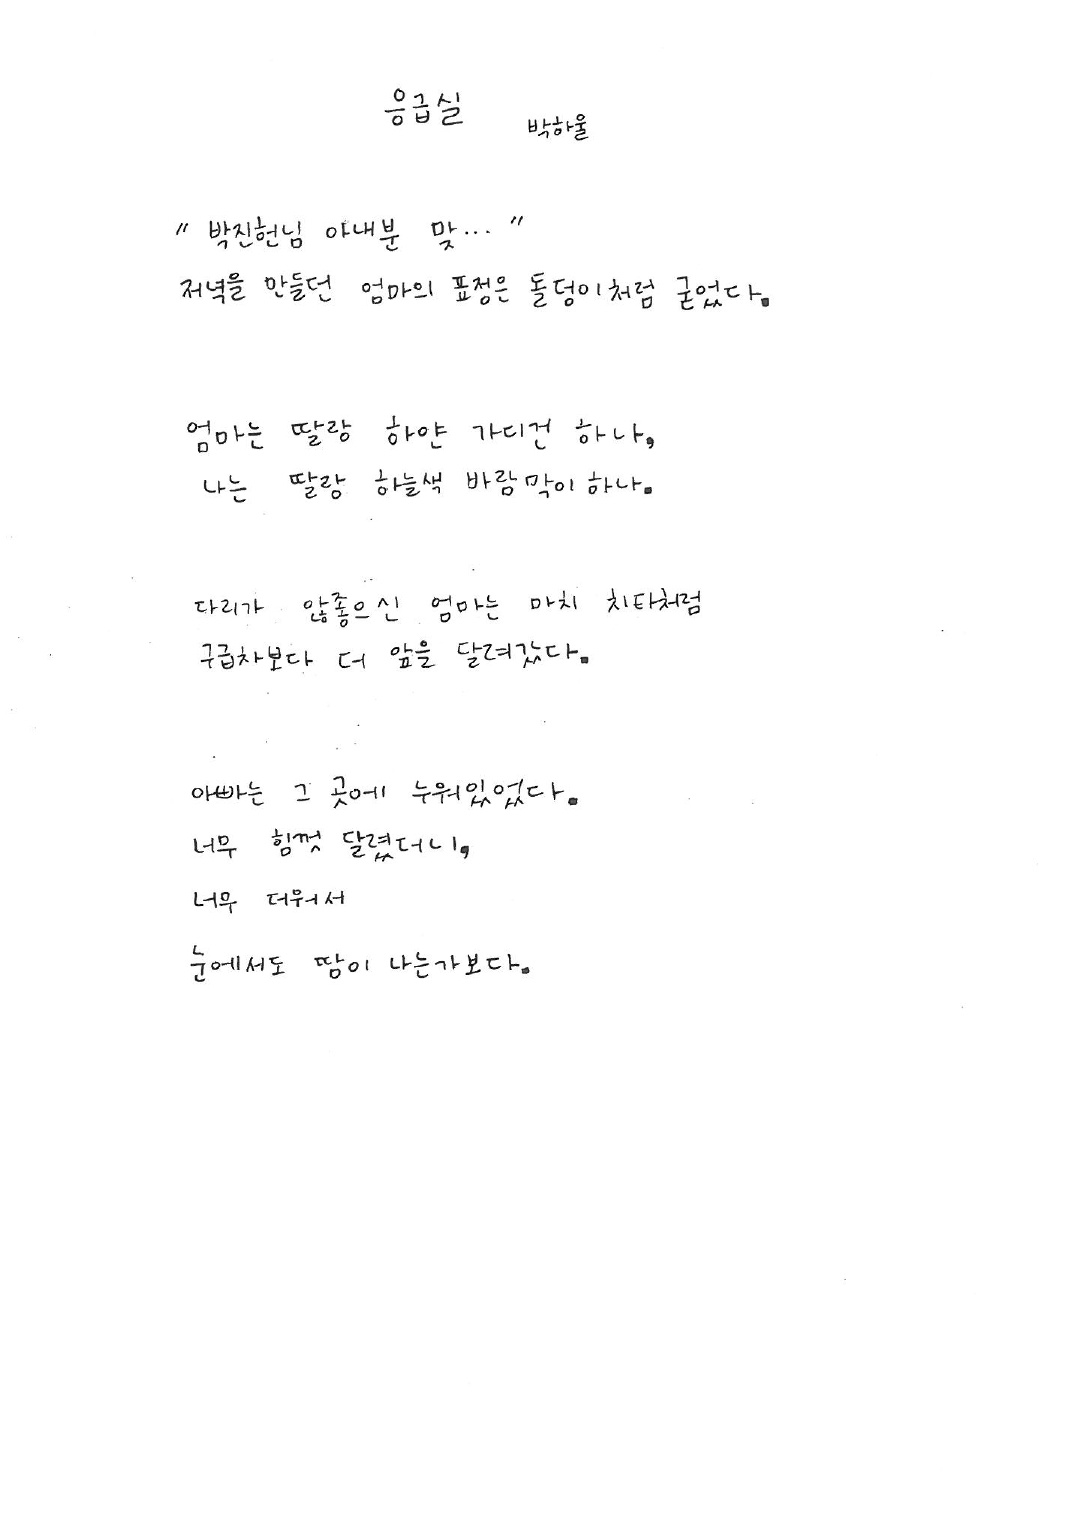 응급실
박하울
" 박진헌님 아내분 맞... "
저녁을 만들던 엄마의 표정은 돌덩이처럼 굳었다.
엄마는 딸랑 하얀 가디건 하나,
나는 딸랑 하늘색 바람막이 하나.
다리가 않좋으신 엄마는 마치 치타처럼
구급차보다 더 앞을 달려갔다.
아빠는 그 곳에 누워있었다.
너무 힘껏 달렸더니,
너무 더워서
눈에서도 땀이 나는가보다.